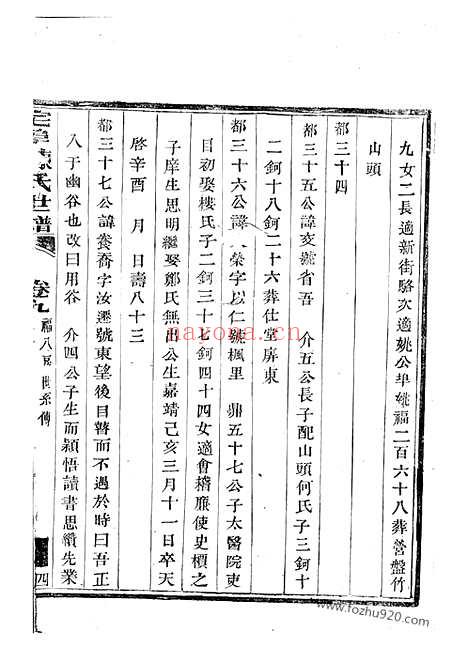 九女二長適新街駱次適姚公埠姚福二百六十八葬營盤竹
山頭
都三十四
都三十五公諱亥號省吾 介五公長子配山頭何氏子三鈳十
二鈳十八鈳二十六葬仕堂屏東
都三十六公諱 榮字以仁號楓里 鼎五十七公子太醫院吏
目初娶樓氏子二鈳三十七鈳四十四女適會稽廉使史槓之
子庠生思明繼娶鄭氏無出公生嘉靖己亥三月十一日卒天
啓辛酉 月 日壽八十三
都三十七公諱養喬字汝遷號東望後目瞽而不遇於時曰吾正
入于幽谷也改曰用谷 介四公子生而穎悟讀書思纘先業
氏世譜
卷九
福八房世系傳
四
nayona.cn
www.fozhu920.com